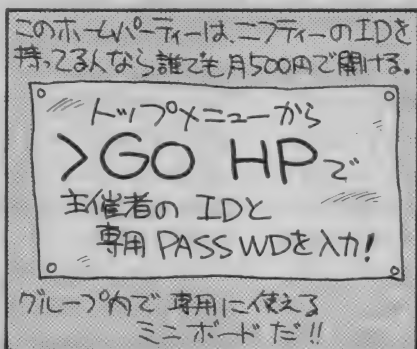 このホームパーティーは、ニフティーのIDを
持ってる人なら誰でも月500円で開ける。
トップメニューから
>GO HPで
主催者のIDと
専用PASSWDを入力!
グループ内で専用に使える
ミニボードだ!!